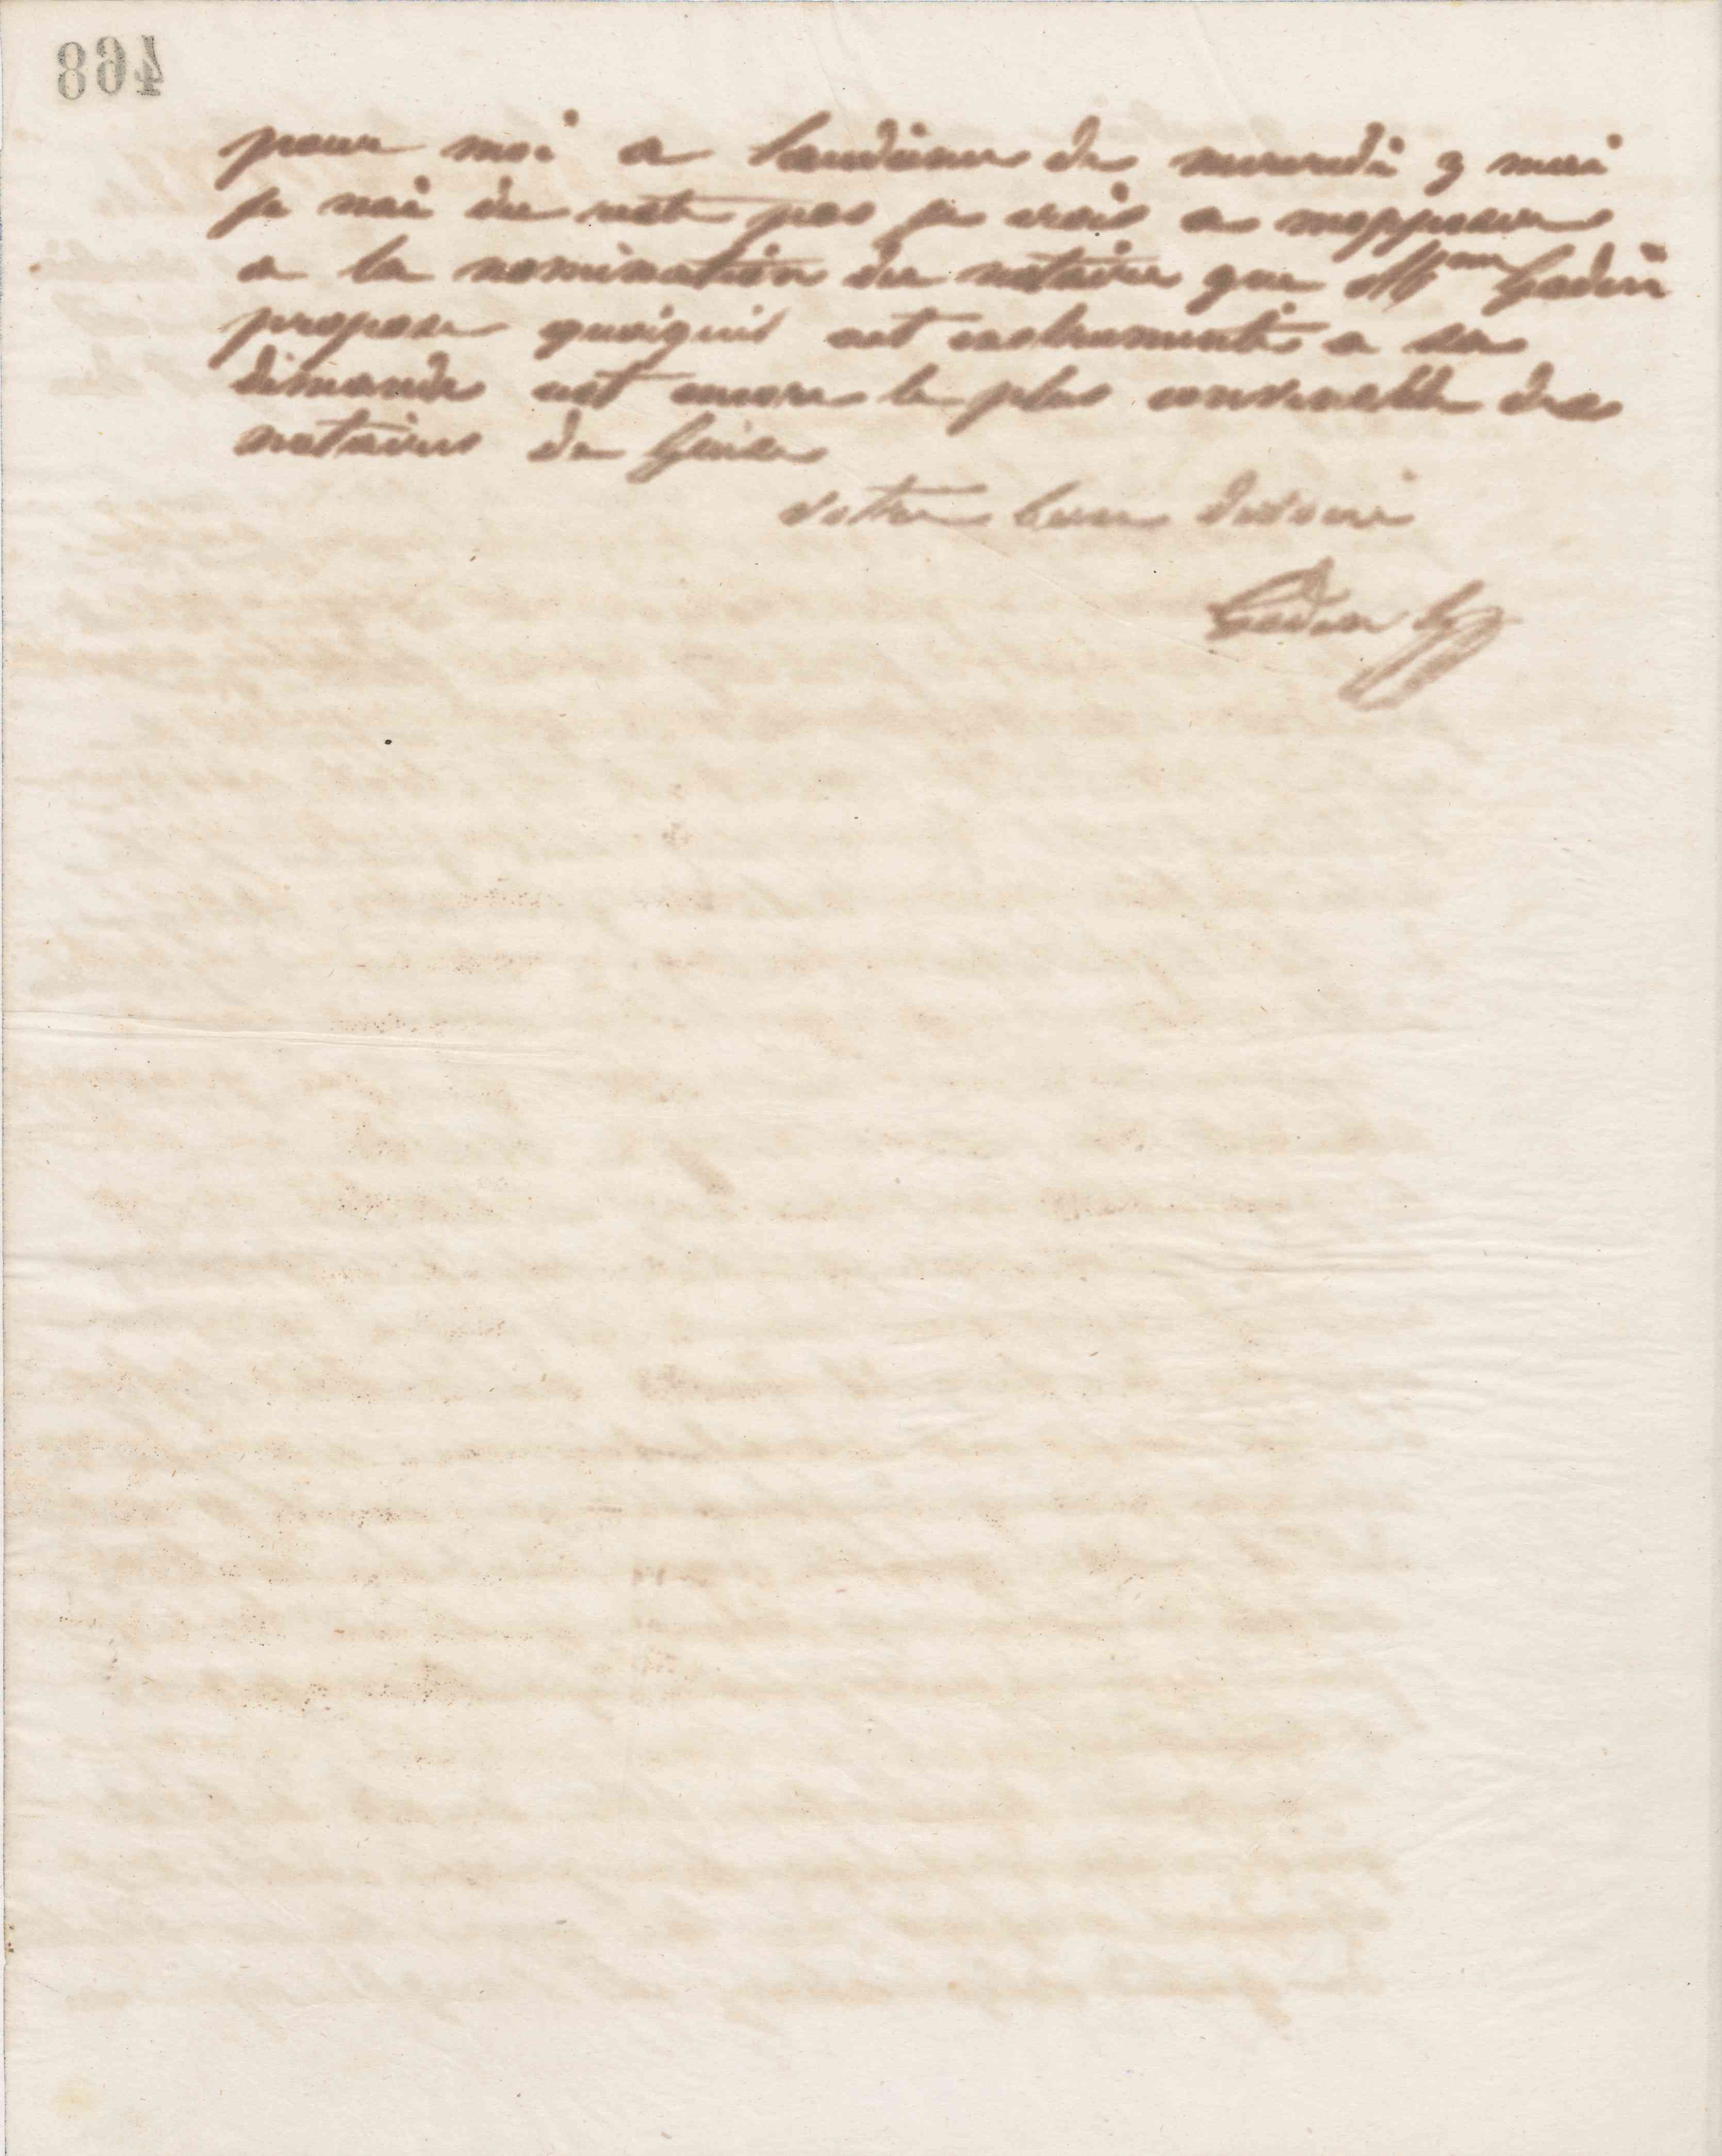 468
pour moi a laudience du mercredi 3 mai
je nai du reste pas je crois a mopposer
a la nomination du notaire que Mme Godin
propose quoiquil ait instrumenté a sa
demande est encore le plus convenable des
notaires de Guise
votre bien devoué
Godin